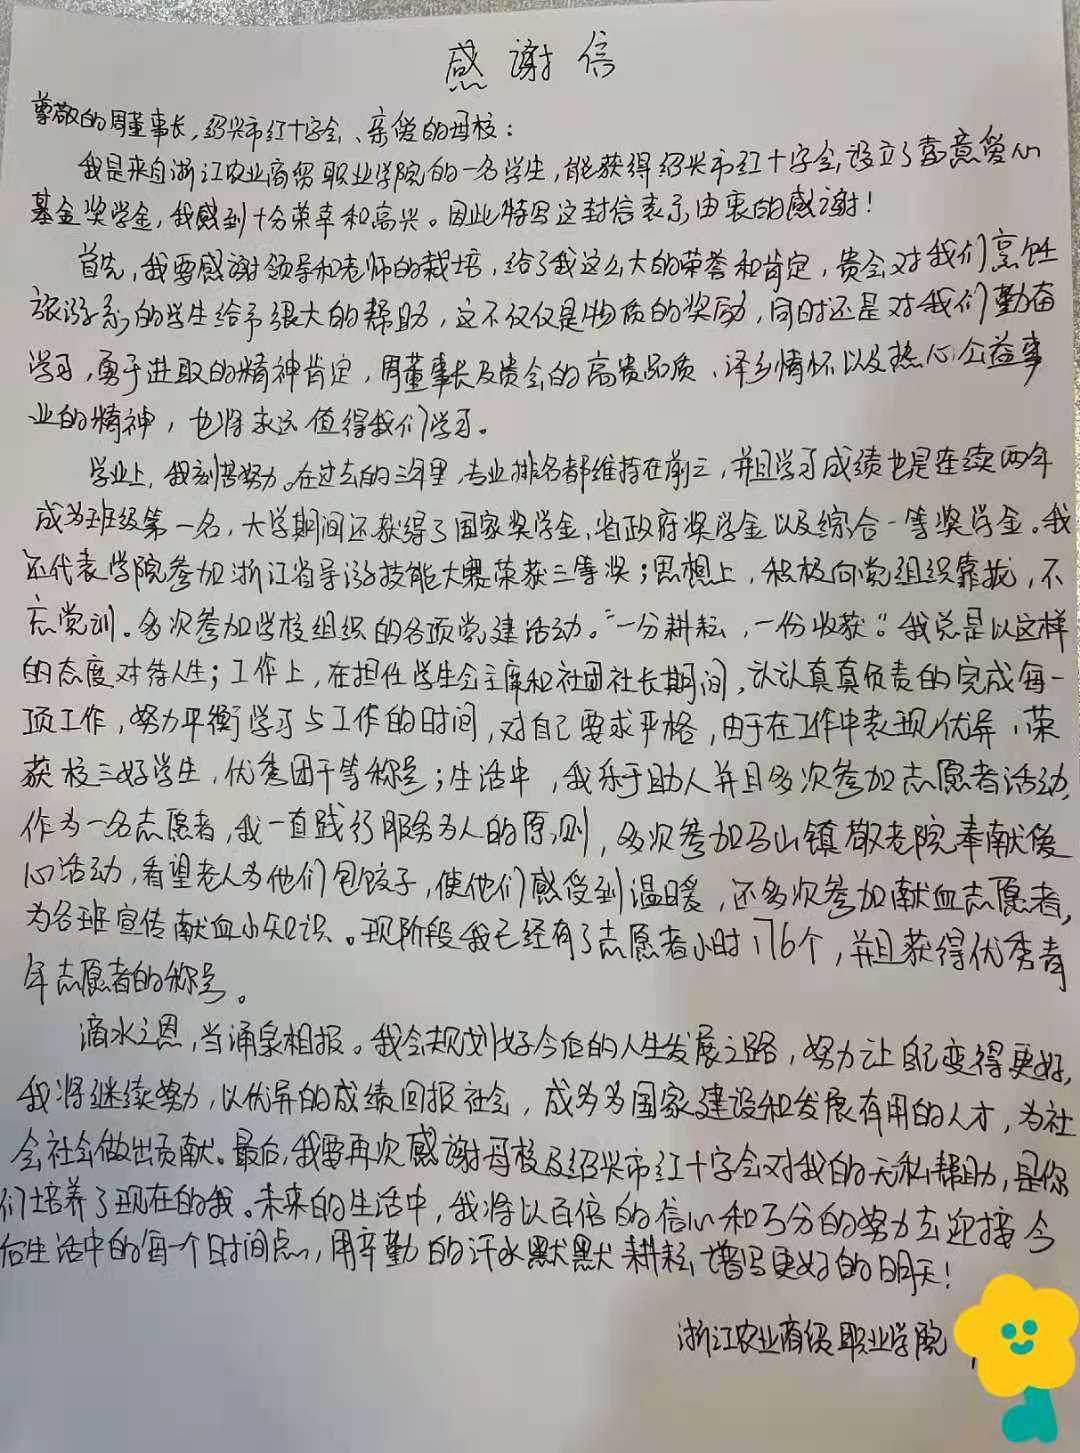 感谢信
尊敬的周董事长,绍兴市红十字会、亲爱的母校:
我是来自浙江农业商贸职业学院的一名学生,能获得绍兴市红十字会,设立了喜意爱心
基金奖学金,我感到十分荣幸和高兴。因此特写这封信表示由衷的感谢!
首先,我要感谢领导和老师的栽培,给了我这么大的荣誉和肯定,贵会对我们烹饪
旅游系的学生给予很大的帮助,这不仅仅是物质的奖励,同时还是对我们勤奋
学习,勇于进取的精神肯定,周董事长及贵会的高贵品质、泽乡情怀以及热心公益事
业的精神,也将永远值得我们学习。
学业上,我刻苦努力。在过去的三年里,专业排名都维持在前三,并且学习成绩也是连续两年
成为班级第一名,大学期间还获得了国家奖学金,省政府奖学金以及综合一等奖学金。我
还代表学院参加浙江省导游技能大赛荣获三等奖;思想上,积极向党组织靠拢,不
忘党训。多次参加学校组织的各项党建活动。“一分耕耘,一份收获”。我总是以这样
的态度对待人生;工作上,在担任学生会主席和社团社长期间,认认真真负责的完成每一
项工作,努力平衡学习与工作的时间,对自己要求严格,由于在工作中表现优异,荣
获校三好学生,优秀团干等称号;生活中,我乐于助人并且多次参加志愿者活动,
作为一名志愿者,我一直践行服务为人的原则,多次参加马山镇敬老院奉献爱
心活动,看望老人为他们包饺子,使他们感受到温暖,还多次参加献血志愿者,
为各班宣传献血小知识。现阶段我已经有了志愿者小时176个,并且获得优秀青
年志愿者的称号。
滴水之恩,当涌泉相报。我会规划好今后的人生发展之路,努力让自己变得更好,
我将继续努力,以优异的成绩回报社会,成为为国家建设和发展有用的人才,为社
会社会做出贡献。最后,我要再次感谢母校及绍兴市红十字会对我的无私帮助,是你
们培养了现在的我。未来的生活中,我将以百倍的信心和万分的努力去迎接今
后生活中的每一个时间点,用辛勤的汗水默默耕耘,谱写更好的明天!
浙江农业商贸职业学院